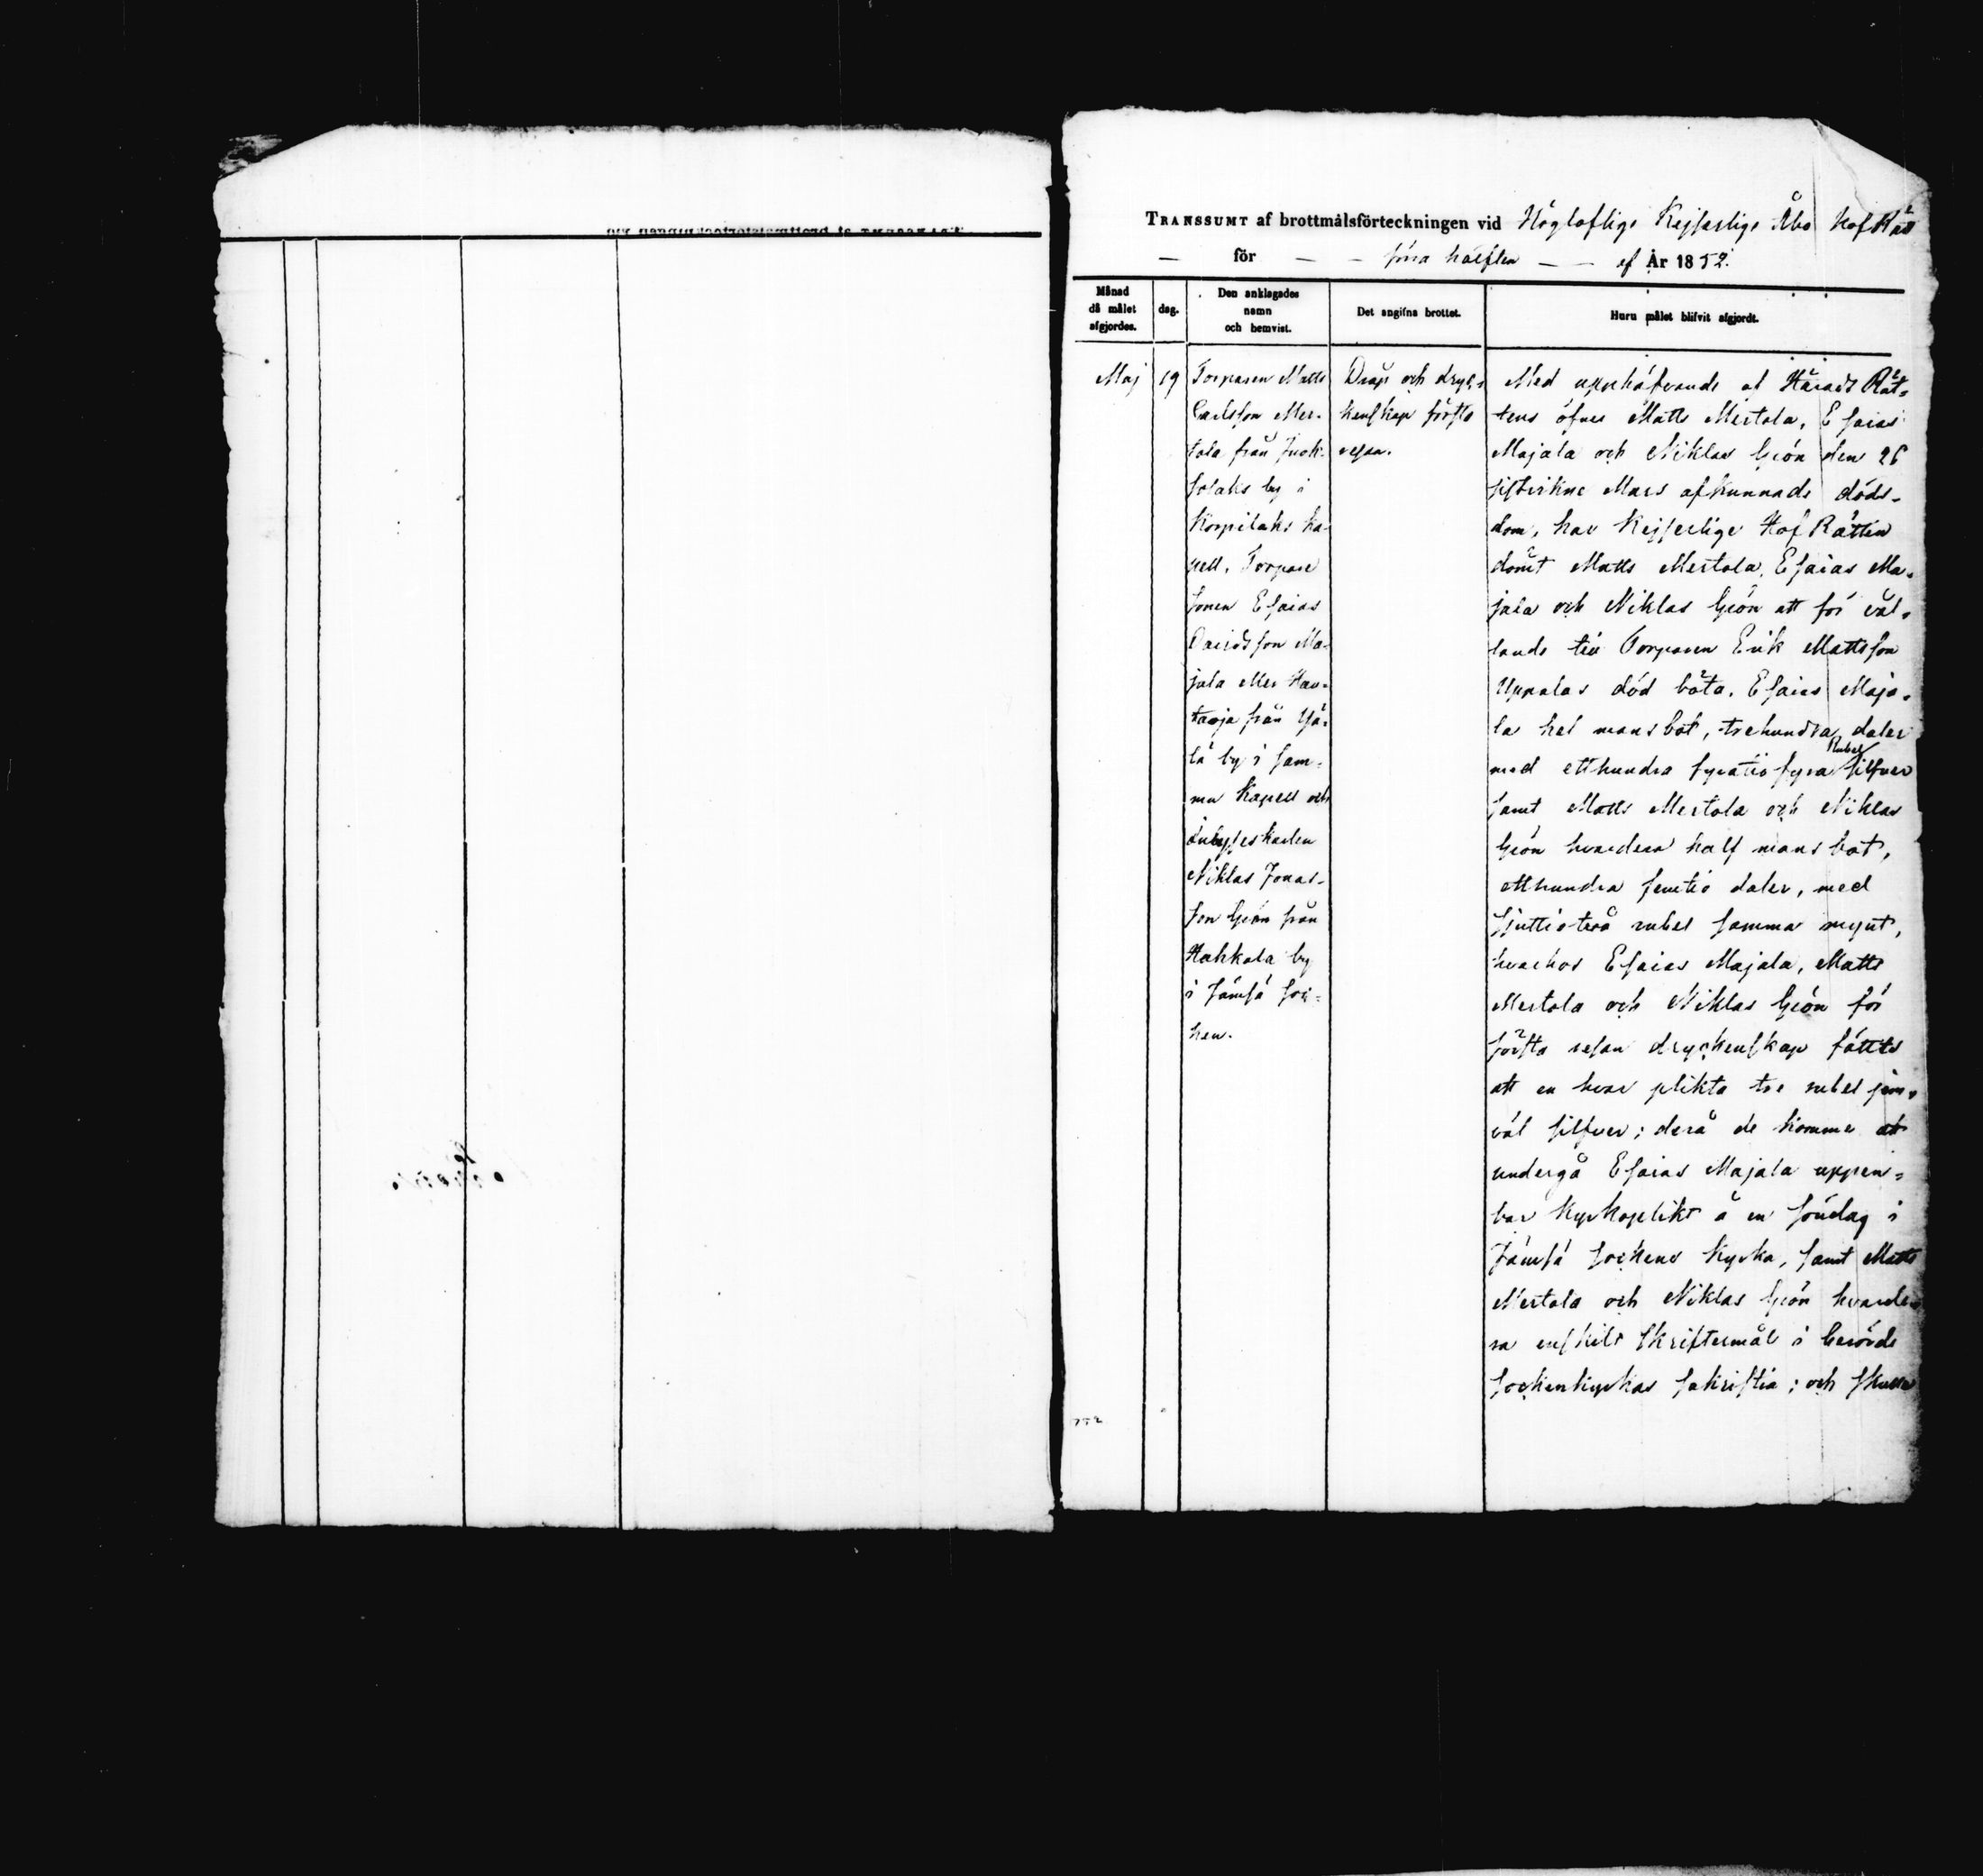 TRANSSUMT af brottmålsförteckningen vid Högloflige Kejserlige Åbo Hof Rätt
för förra hälften af År 1852.
Månad då målet afgjordes.
dag.
Den anklagades namn och hemvist.
Det angifna brottet.
Huru målet blifvit afgjordt.
Maj
19
Torparen Matts
Carlsson Mer-
tola från Juok-
solaks by i
Korpilaks ka-
pell, Torpare
sonen Esaias
Davidsson Ma-
jala eller Hau-
taoja från Ylä-
lä by i sam-
ma Kapell och
inhyseskarlen
Niklas Jonas-
son Grön från
Hahkala by
i Jämsä soc-
ken.
Dråp och dryc-
kenskap första
resan.
Med upphäfvande af Härads Rät-
tens öfver Matts Mertola, Esaias
Majala och Niklas Grön den 26
sistvikne Mars afkunnade döds-
dom, har Kejserlige Hof Rätten
dömt Matts Mertola, Esaias Ma-
jala och Niklas Grön att för vål-
lande till Torparen Erik Mattsson
Uppalas död böta, Esaias Maja-
la hel mansbot, trehundra daler
med etthundra fyratiofyra Rubel silfver
samt Matts Mertola och Niklas
Grön hvardera half mansbot,
etthundra femtio daler, med
sjuttiotvå rubel samma mynt,
hvarhos Esaias Majala, Matts
Mertola och Niklas Grön för
första resan dryckenskap fällts
att en hvar plikta tre rubel jem-
väl silfver; derå de komme att
undergå Esaias Majala uppen-
bar Kyrkoplikt å en söndag i
Jämsä sockens kyrka, samt Matts
Mertola och Niklas Grön hvarde-
ra enskilt skriftermål i berörde
sockenkyrkas sakristia; och skulle